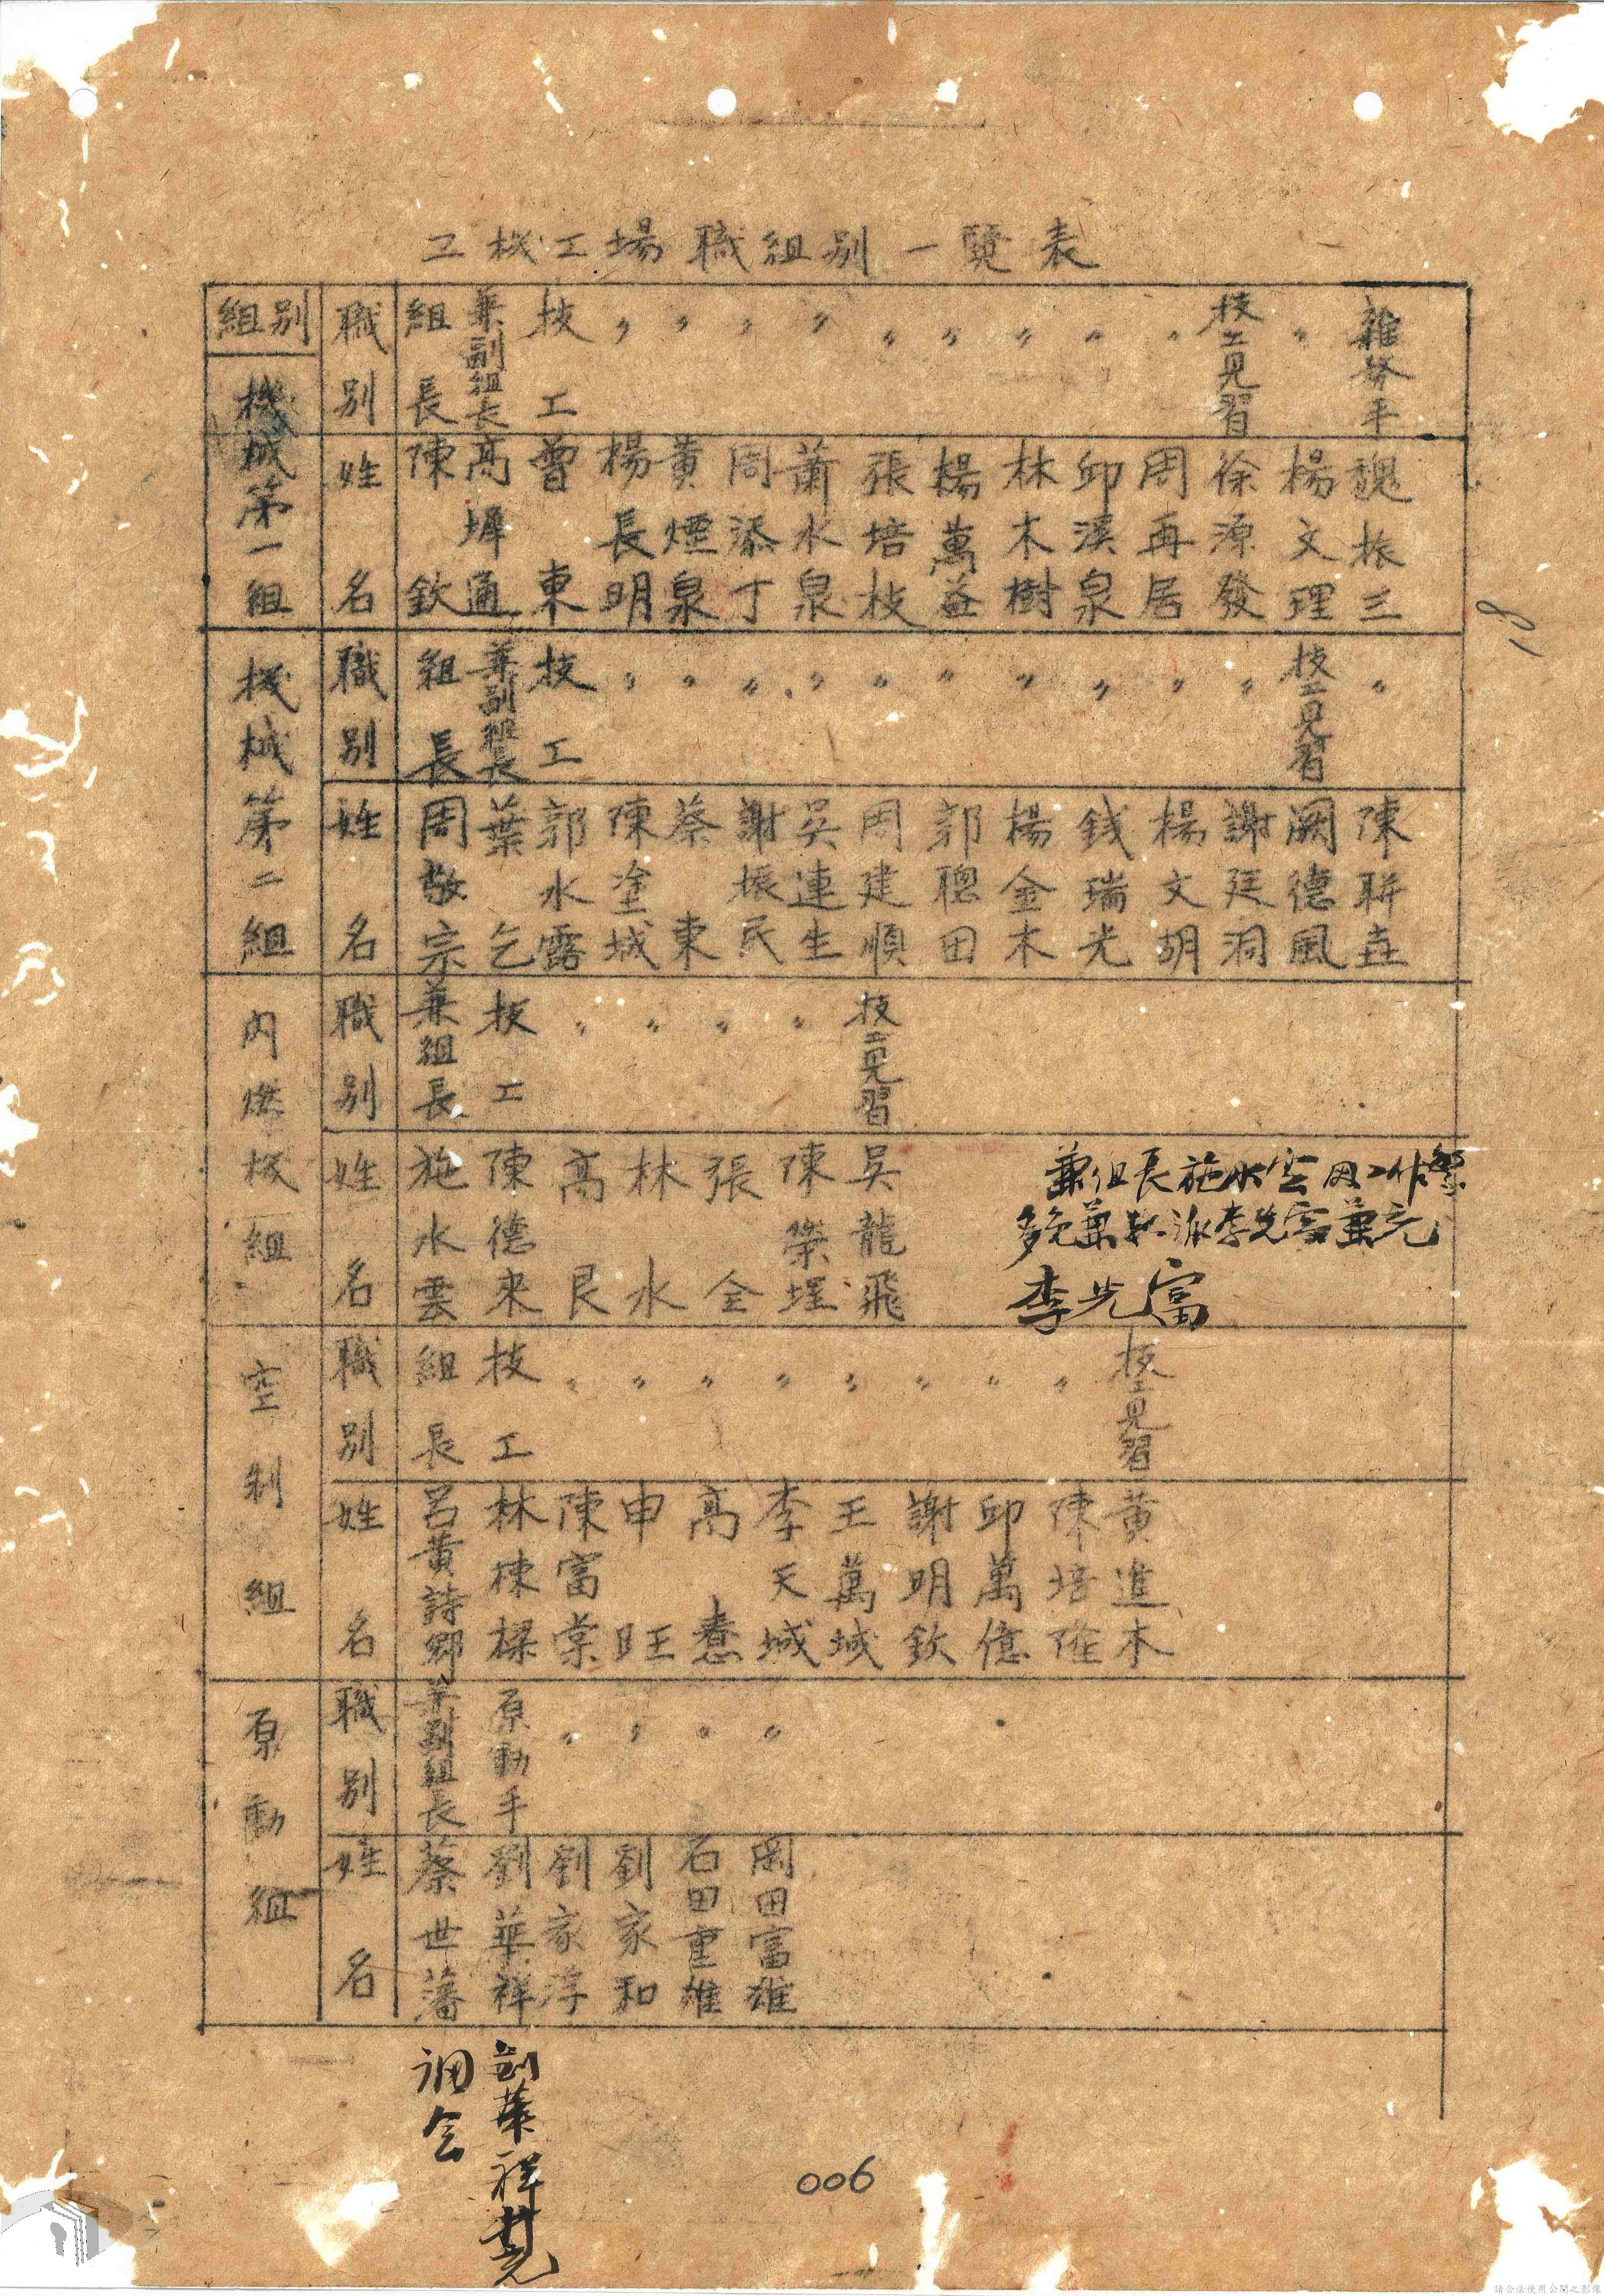 工機工場職組別一覽表
組別
機械第一組
職別
組長
兼副組長
技工
〃
〃
〃
〃
〃
〃
〃
〃
〃
技工見習
〃
雜務手
姓名
陳欽
高墀通
曾東
楊長明
黃煙泉
周添丁
蕭水泉
張培枝
楊萬益
林木樹
邱溪泉
周再居
徐源發
楊文理
魏振三
機械第二組
職別
組長
兼副組長
技工
〃
〃
〃
〃
〃
〃
〃
〃
〃
〃
技工見習
〃
姓名
周敬宗
葉乞
郭水露
陳塗城
蔡東
謝振民
吳連生
周建順
郭聰田
楊金木
錢瑞光
楊文胡
謝廷洞
闕德風
陳聯垚
內燃機組
職別
兼組長
技工
〃
〃
〃
〃
技工見習
姓名
施水雲
陳德來
高艮
林水
張全
陳榮埕
吳龍飛
兼組長施水雲因工作繁
多免兼找派李先富兼充
李先富
空制組
職別
組長
技工
〃
〃
〃
〃
〃
〃
〃
〃
技工見習
姓名
呂黃詩鄉
林棟樑
陳富棠
申旺
高憃
李天城
王萬城
謝明欽
邱萬億
陳培
黃進木
原動組
職別
兼副組長
原動手
〃
〃
〃
〃
姓名
蔡世藩
劉華祥
劉家淳
劉家和
石田重雄
岡田富雄
調会
劉華祥
006
請合法使用公開之影像